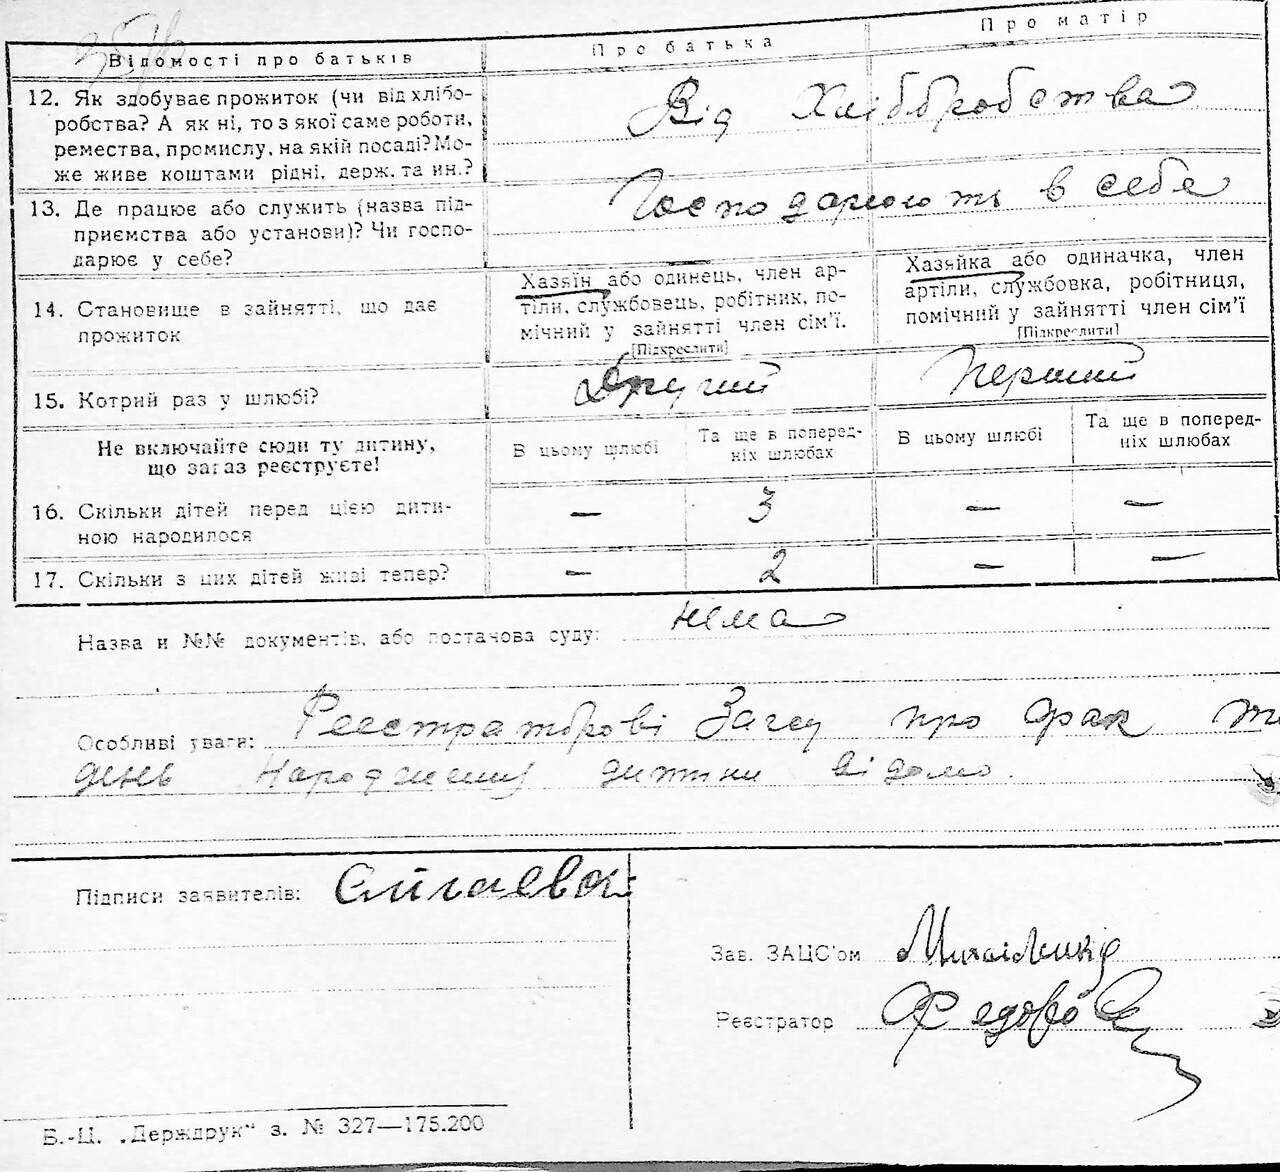 Відомості про батьків
Про батька
Про матір
12. Як здобуває прожиток (чи від хлібо-
робства? А як ні, то з якої саме роботи,
ремества, промислу, на якій посаді? Мо-
же живе коштами рідні, держ. та ин.?
Від Хліборобства
13. Де працює або служить (назва під-
приємства або установи)? Чи госпо-
дарює у себе?
Господарюють в себе
14. Становище в зайнятті, що дає
прожиток
Хазяїн або одинець, член ар-
тіли, службовець, робітник, по-
мічний у зайнятті член сім'ї.
[Підкреслити]
Хазяйка або одиначка, член
артіли, службовка, робітниця,
помічний у зайнятті член сім'ї
[Підкреслити]
15. Котрий раз у шлюбі?
Другий
Перший
Не включайте сюди ту дитину,
що зараз реєструєте!
В цьому шлюбі
Та ще в поперед-
ніх шлюбах
В цьому шлюбі
Та ще в поперед-
ніх шлюбах
16. Скільки дітей перед цією дити-
ною народилося
— 3 — —
17. Скільки з цих дітей живі тепер?
— 2 — —
Назва и №№ документів, або постанова суду: нема
Особливі уваги: Реєстраторові Загсу про фак та
день народження дитини відомо.
Підписи заявителів:
Зав. ЗАЦС'ом
Реєстратор
Б.-Ц. „Держдрук" з. № 327—175.200